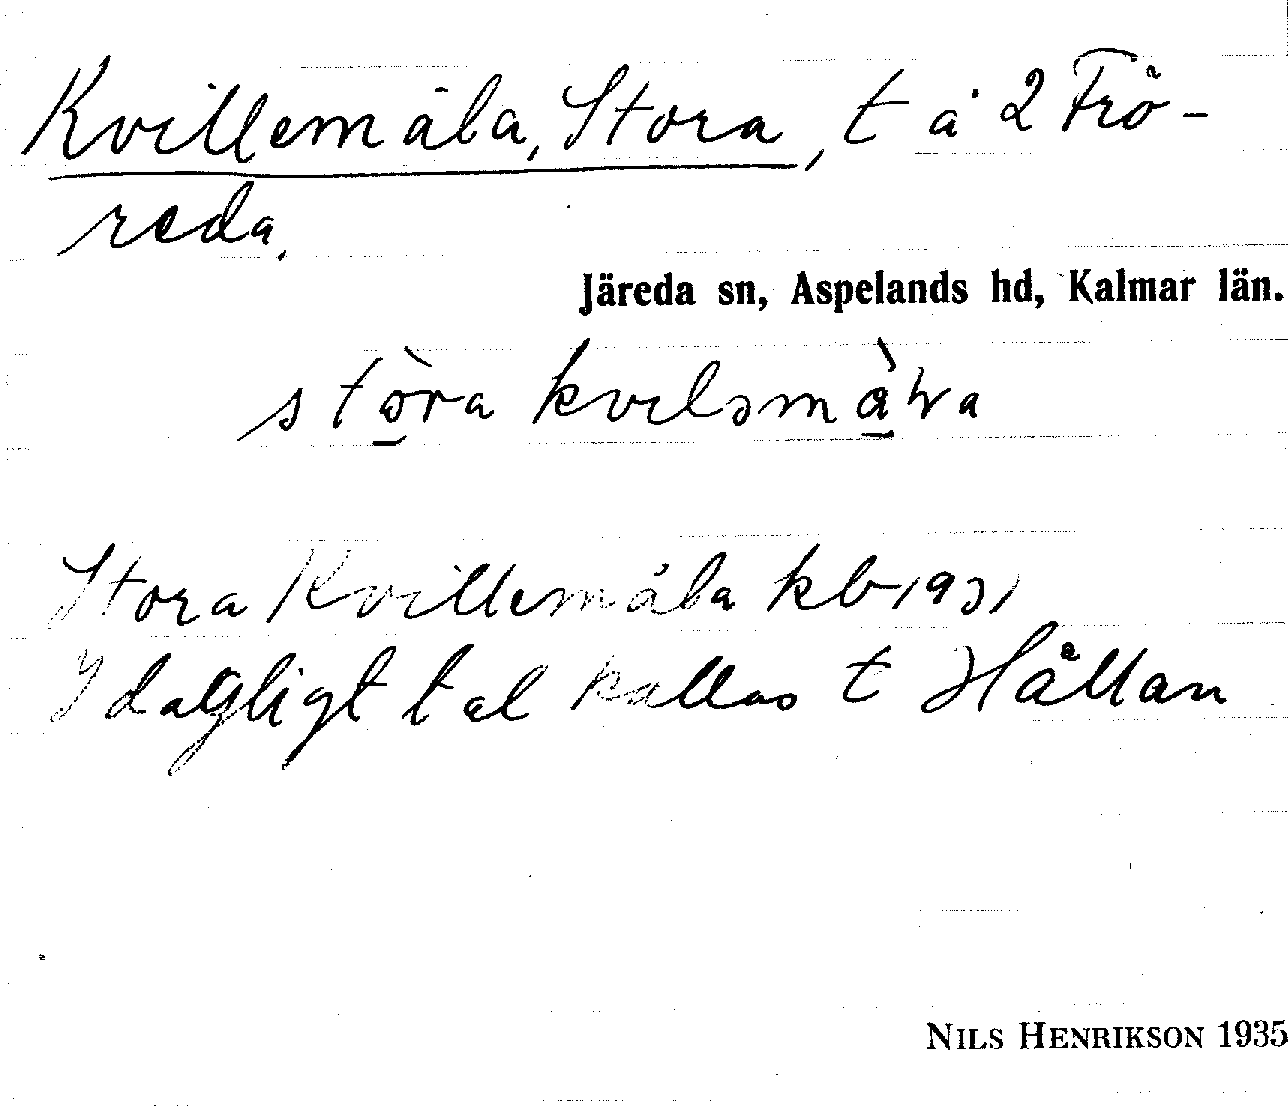 Kvillemåla, Stora, t å 2 Frö-
reda.
Järeda sn, Aspelands hd, Kalmar län.
stòra kviləmàla
Stora Kvillemåla kb 1931
I dagligt tal kallas t Hållan
NILS HENRIKSON 1935